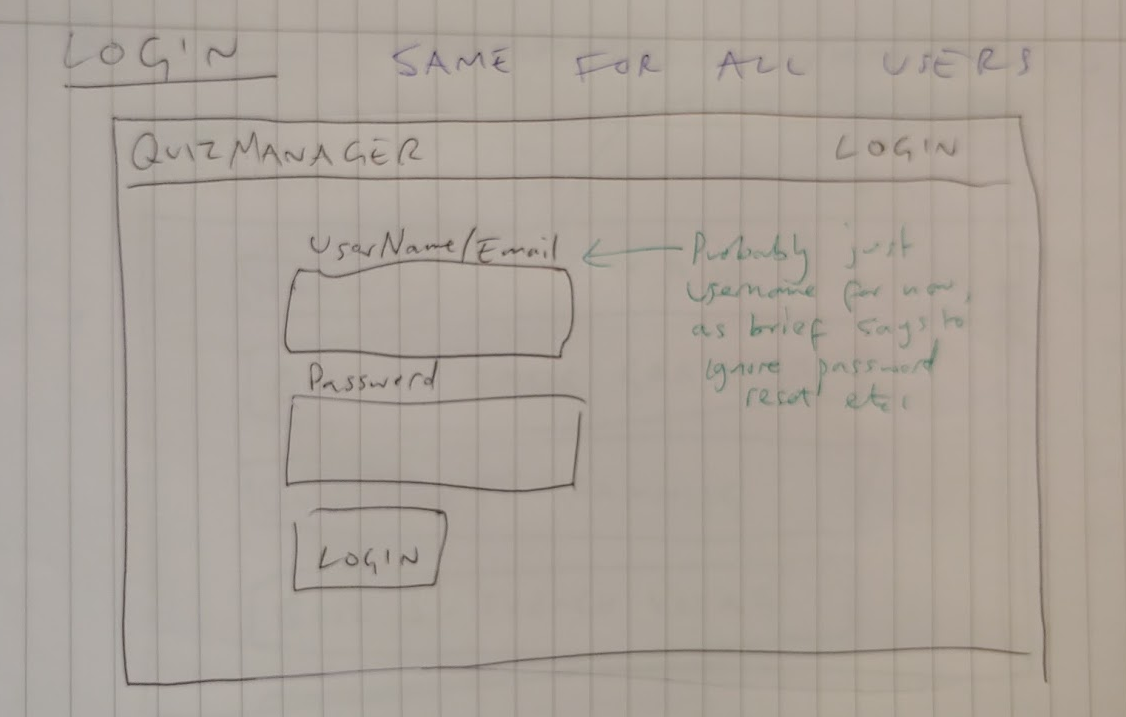 LOGIN
SAME FOR ALL USERS
QUIZMANAGER
LOGIN
UserName/Email
Probably just
username for now,
as brief says to
ignore password
reset etc.
Password
LOGIN